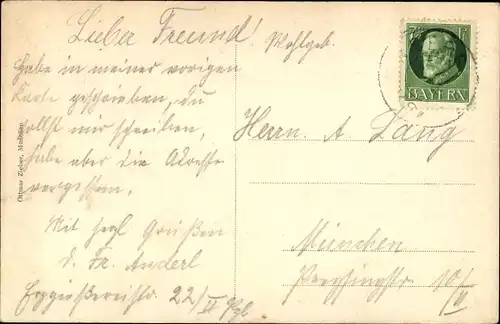 Lieber Freund!
Habe in meiner vorigen
Karte geschrieben, du
sollst mir schreiben,
habe aber die Adresse
vergessen.
Mit herzl Grüßen
d. Fr. Anderl
Erzgießereistr. 22/II
Ottmar Zieher, München
Wohlgeb.
BAYERN
Herrn. A Lang
München